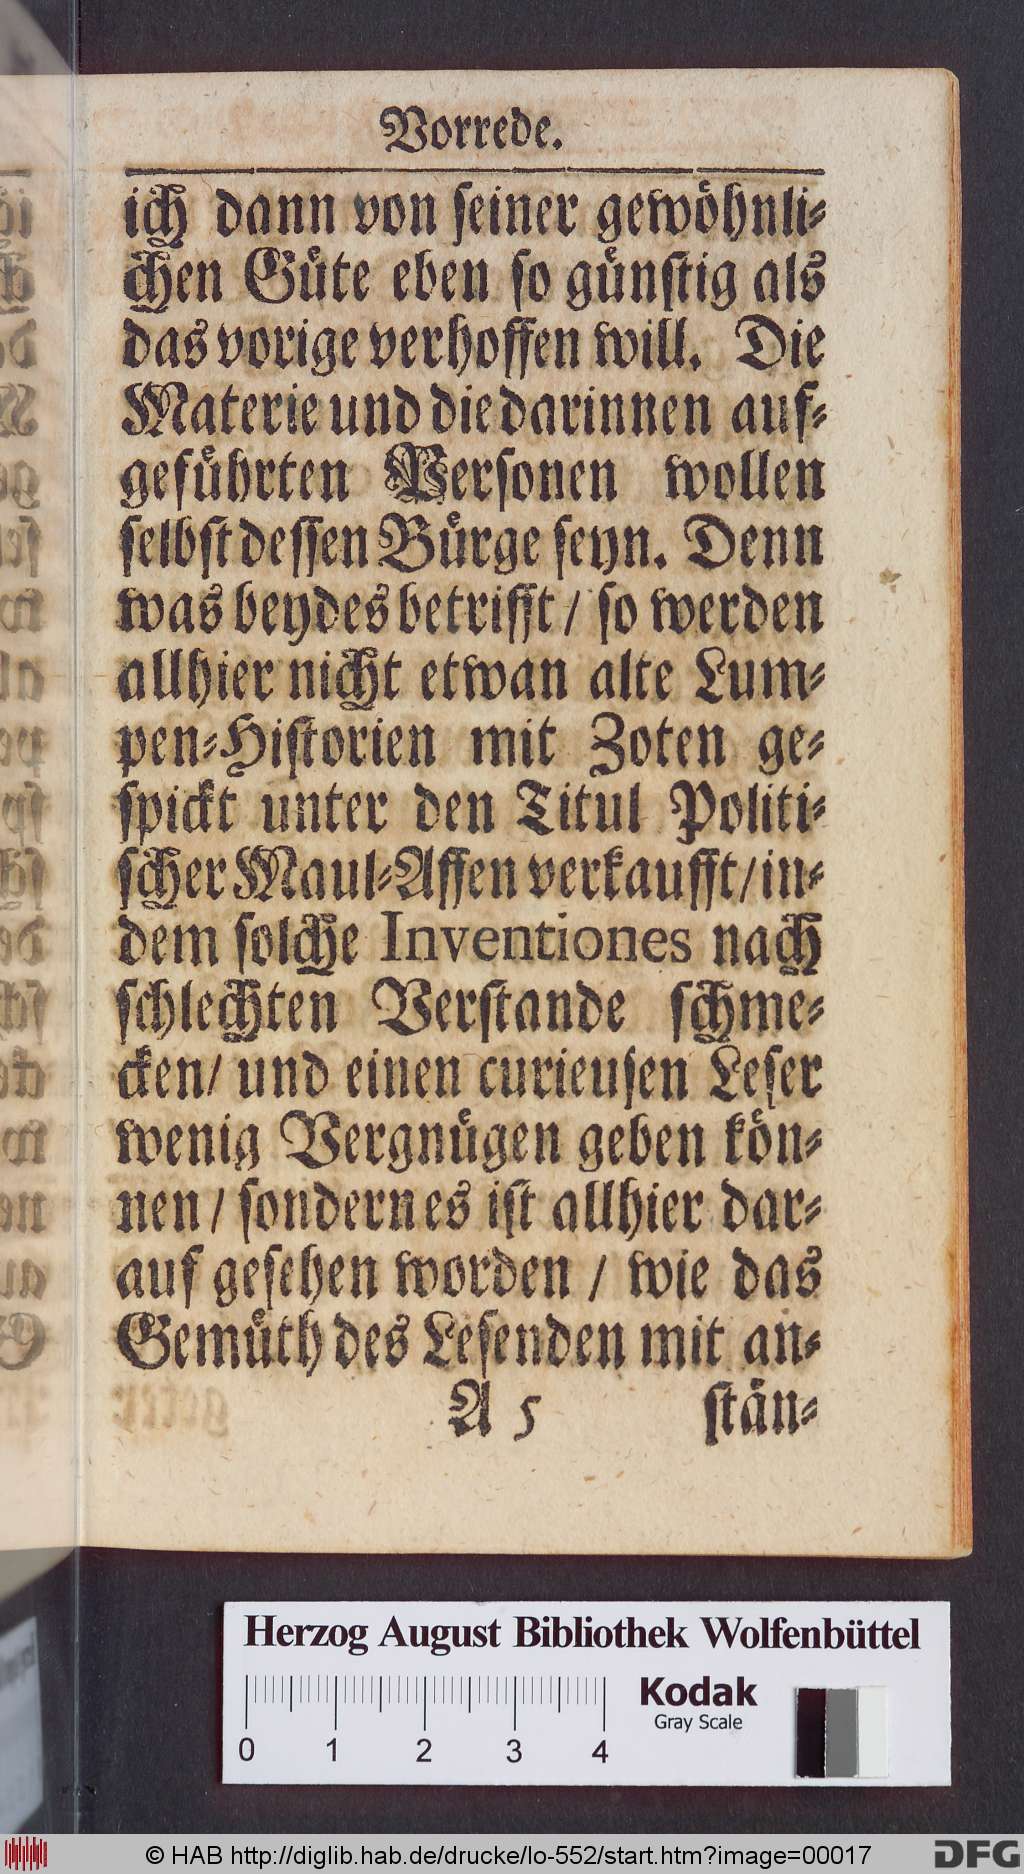 Vorrede.
ich dann von ſeiner gewöhnli⸗
chen Güte eben ſo günſtig als
das vorige verhoffen will. Die
Materie und die darinnen auf⸗
geführten Perſonen wollen
ſelbſt deſſen Bürge ſeyn. Denn
was beydes betrifft / ſo werden
allhier nicht etwan alte Lum⸗
pen⸗Hiſtorien mit Zoten ge⸗
ſpickt unter den Titul Politi⸗
ſcher Maul⸗Affen verkaufft / in⸗
dem ſolche Inventiones nach
ſchlechten Verſtande ſchme⸗
cken / und einen curieuſen Leſer
wenig Vergnügen geben kön⸗
nen / ſondern es iſt allhier dar⸗
auf geſehen worden / wie das
Gemüth des Leſenden mit an⸗
A 5 ſtän⸗
Herzog August Bibliothek Wolfenbüttel
Kodak
Gray Scale
0 1 2 3 4
© HAB http://diglib.hab.de/drucke/lo-552/start.htm?image=00017
DFG